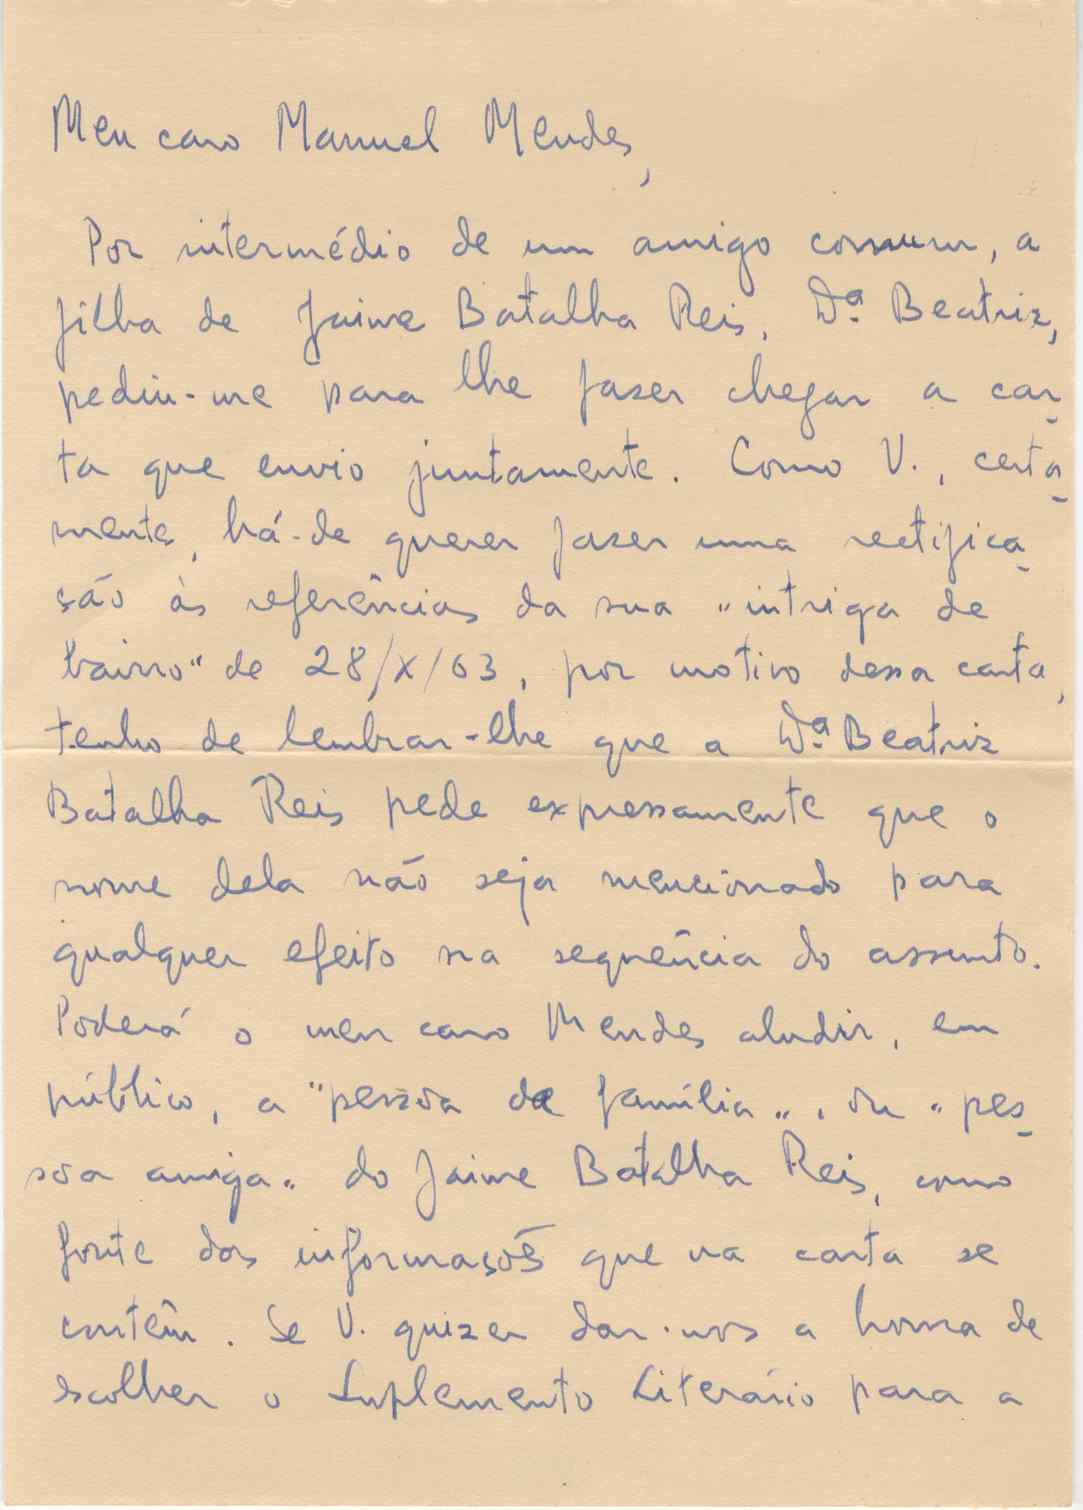 Meu caro Manuel Mendes,
Por intermédio de um amigo comum, a
filha de Jaime Batalha Reis, Dª. Beatriz,
pediu-me para lhe fazer chegar a car-
ta que envio juntamente. Como V., certa-
mente, há-de querer fazer uma rectifica-
ção às referências da sua "intriga de
bairro" de 28/X/63, por motivo dessa carta,
tenho de lembrar-lhe que a Dª. Beatriz
Batalha Reis pede expressamente que o
nome dela não seja mencionado para
qualquer efeito na sequência do assunto.
Poderá o meu caro Mendes aludir, em
público, a "pessoa de família", ou "pes-
soa amiga" do Jaime Batalha Reis, como
fonte das informações que na carta se
contêm. Se V. quizer dar-nos a honra de
escolher o Suplemento Literário para a